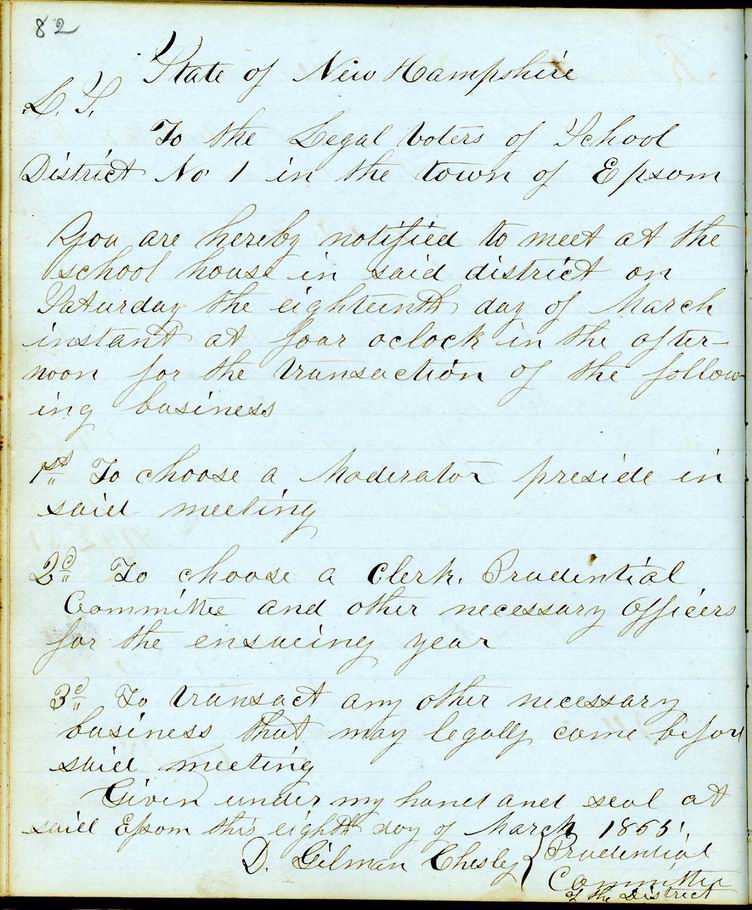 82
State of New Hampshire
L. S.
To the Legal voters of School
District No 1 in the town of Epsom
You are hereby notified to meet at the
school house in said district on
Saturday the eighteenth day of March
instant at four oclock in the after-
noon for the transaction of the follow-
ing business
1st To choose a Moderator preside in
said meeting
2d To choose a Clerk. Prudential
Committee and other necessary officers
for the ensueing year
3d To transact any other necessary
business that may legally come before
said meeting
Given under my hand and seal at
said Epsom this eighth day of March 1865
D. Gilman Chesley } Prudential
Committee
of the District